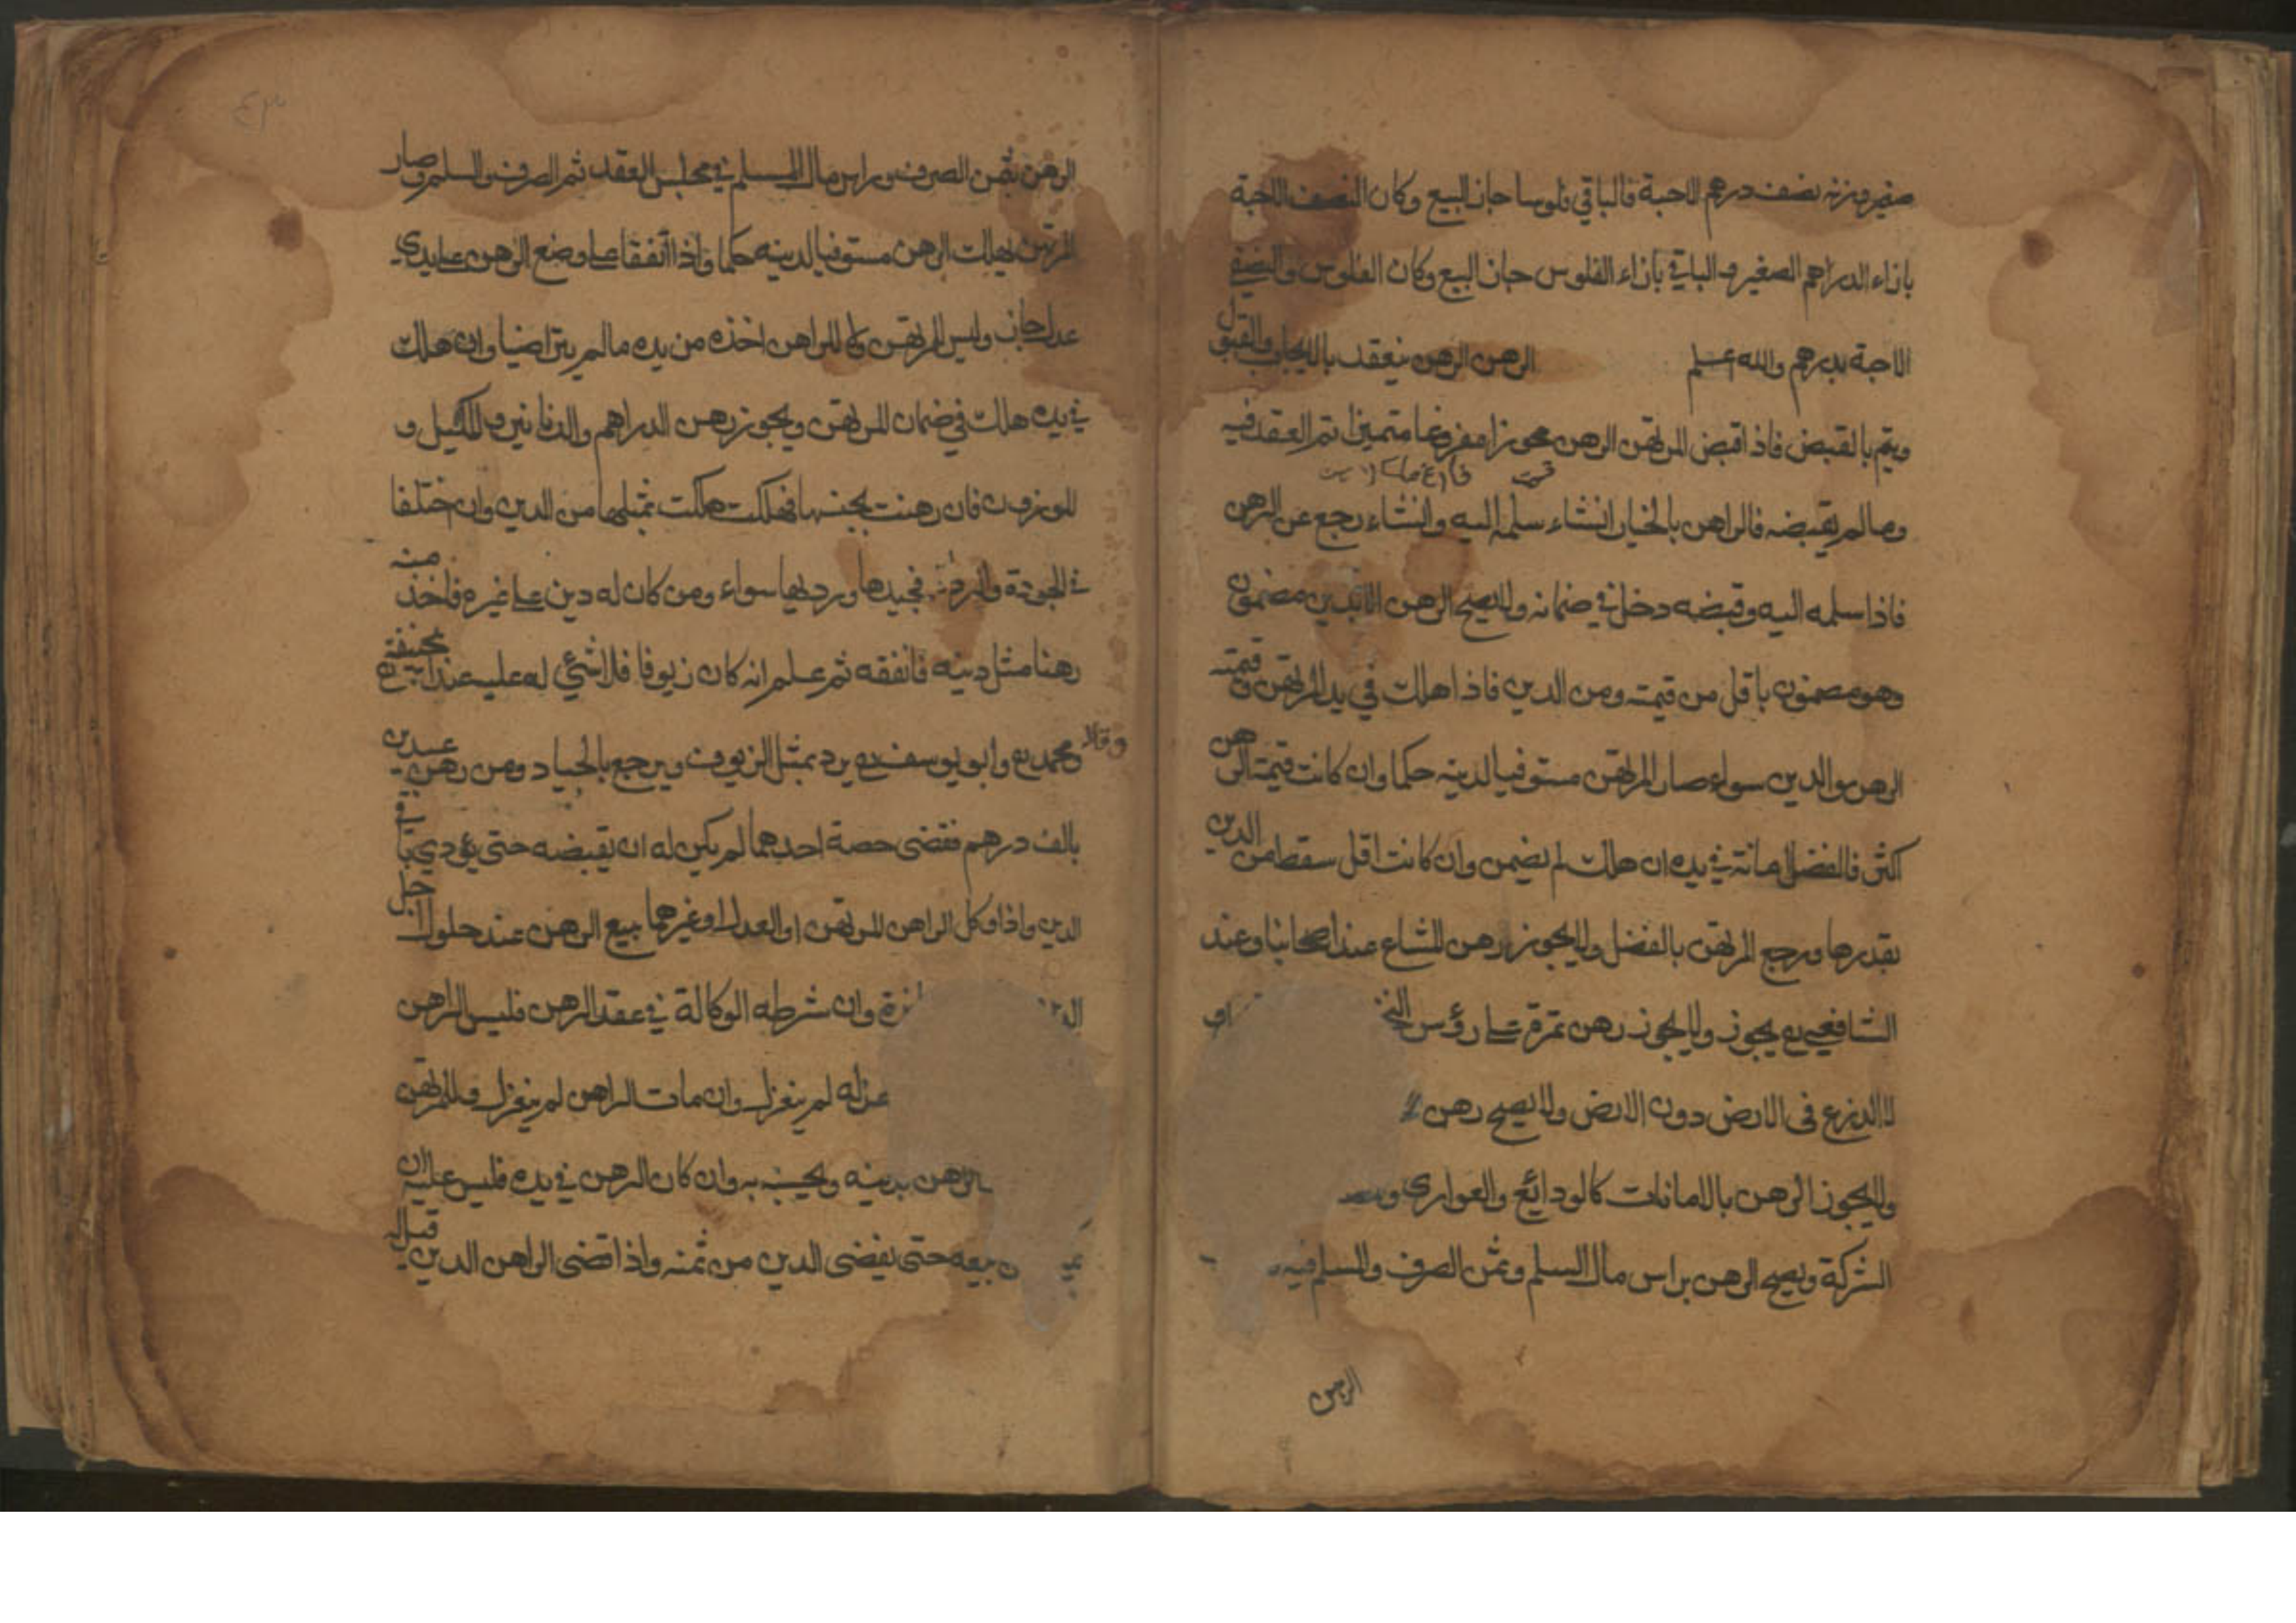 صغير وزنه نصف درهم الاحبة فالباقي فلوسا جاز البيع وكان النصف الاحبة
بازاء الدراهم الصغير والباقي بازاء الفلوس جاز البيع وكان الفلوس والنصف
الاحبة بدرهم والله اعلم الرهن الرهن ينعقد بالايجاب والقبول
ويتم بالقبض فاذا قبض المرتهن الرهن محوزا مفروغا متميزا تم العقد فيه
وما لم يقبضه فالراهن بالخيار انشاء سلمه اليه وانشاء رجع عن الرهن
فاذا سلمه اليه وقبضه دخل في ضمانه ولا يصح الرهن الا بدين مضمون
وهو مضمون باقل من قيمته ومن الدين فاذا هلك في يد المرتهن وقيمته
الرهن والدين سواء صار المرتهن مستوفيا لدينه حكما وان كانت قيمة الرهن
اكثر فالفضل امانة في يده ان هلك لم يضمن وان كانت اقل سقط من الدين
بقدرها ورجع المرتهن بالفضل ولا يجوز رهن المشاع عند اصحابنا وعند
الشافعي رح يجوز ولا يجوز رهن تمرة على رؤس
لا الزرع في الارض دون الارض ولا يصح رهن
ولا يجوز الرهن بالامانات كالودائع والعواري
الشركة ويصح الرهن براس مال السلم وثمن الصرف والمسلم فيه
الرهن
٤٣
الرهن بثمن الصرف وراس مال السلم في مجلس العقد ثم الصرف والسلم وصار
المرتهن بهلاك الرهن مستوفيا لدينه حكما واذا اتفقا على وضع الرهن على يدي
عدل جاز وليس للمرتهن ولا للراهن اخذه من يده مالم يتراضيا وان هلك
في يده هلك في ضمان المرتهن ويجوز رهن الدراهم والدنانير والمكيل و
الموزون فان رهنت بجنسها فهلكت هلكت بمثلها من الدين وان اختلفا
في الجودة والرداءة فجيدها ورديها سواء ومن كان له دين على غيره فاخذ منه
رهنا مثل دينه فانفقه ثم علم انه كان زيوفا فلا شيء له عليه عند ابي حنيفة رح
وقالا محمد رح وابو يوسف رح يرد مثل الزيوف ويرجع بالجياد ومن رهن عبدين
بالف درهم فقضى حصة احدهما لم يكن له ان يقبضه حتى يؤدي باقي
الدين واذا وكل الراهن المرتهن او العدل او غيرهما ببيع الرهن عند حلول الاجل
وان شرطه الوكالة في عقد الرهن فليس للراهن
عزله لم ينعزل وان مات الراهن لم ينعزل وللمرتهن
الرهن بدينه ويحبسه به وان كان الرهن في يده فليس عليه ان
بيعه حتى يقضي الدين من ثمنه واذا قضى الراهن الدين قيل له